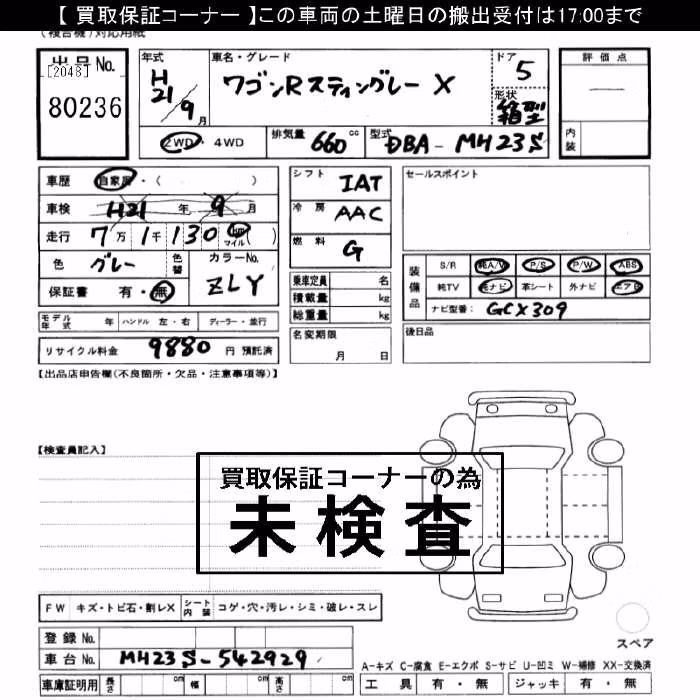 【 買取保証コーナー 】この車両の土曜日の搬出受付は17:00まで
(複合機)対応用紙
出品No.
[2048]
80236
年式
H21/9月
車名・グレード
ワゴンRスティングレー X
ドア
5
形状
箱型
2WD・4WD
排気量 660 cc
型式 DBA-MH23S
評価点
内装
車歴 自家用・( )
車検 H21 年 9 月
走行 7万1千130 km マイル( )
色 グレー
色替
カラーNo.
ZLY
保証書 有・無
シフト IAT
冷房 AAC
燃料 G
乗車定員 名
積載量 kg
総重量 kg
名変期限
月 日
セールスポイント
装備品
S/R 純A/V P/S P/W ABS
純TV 純ナビ 革シート 外ナビ エアB
ナビ型番: GCX309
後日品
モデル年式 年 ハンドル 左・右 ディーラー・並行
リサイクル料金 9880 円 預託済
【出品店申告欄(不良箇所・欠品・注意事項等)】
【検査員記入】
買取保証コーナーの為
未検査
FW キズ・トビ石・割レX
シート内装 コゲ・穴・汚レ・シミ・破レ・スレ
登録No.
車台No. MH23S-542929
車庫証明用 長さ cm 幅 cm 高さ cm
スペア
A-キズ C-腐食 E-エクボ S-サビ U-凹ミ W-補修 XX-交換済
工具 有・無 ジャッキ 有・無